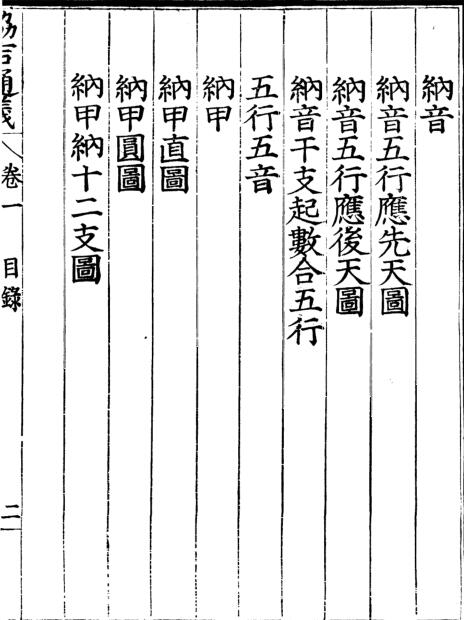 納音
納音五行應先天圖
納音五行應後天圖
納音干支起數合五行
五行五音
納甲
納甲直圖
納甲圓圖
納甲納十二支圖
協吉通義 卷一 目錄 二